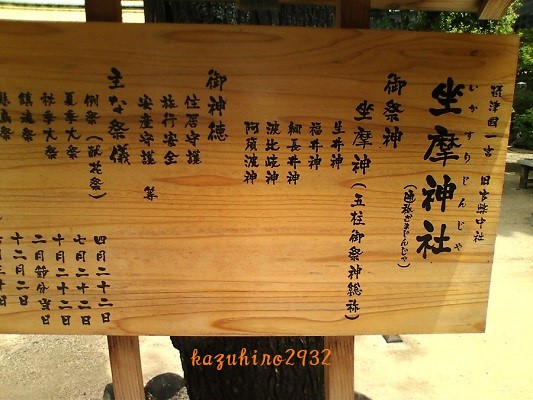 摂津国一宮 旧官幣中社
いかすりじんじゃ
坐摩神社
(通称ざまじんじゃ)
御祭神
坐摩神(五柱御祭神総称)
生井神
福井神
綱長井神
波比岐神
阿須波神
御神徳
住居守護
旅行安全
安産守護 等
主な祭儀
例祭(献花祭) 四月二十二日
夏季大祭 七月二十二日
秋季大祭 十月二十二日
鎮魂祭 二月節分当日
十二月二日
kazuhiro2932